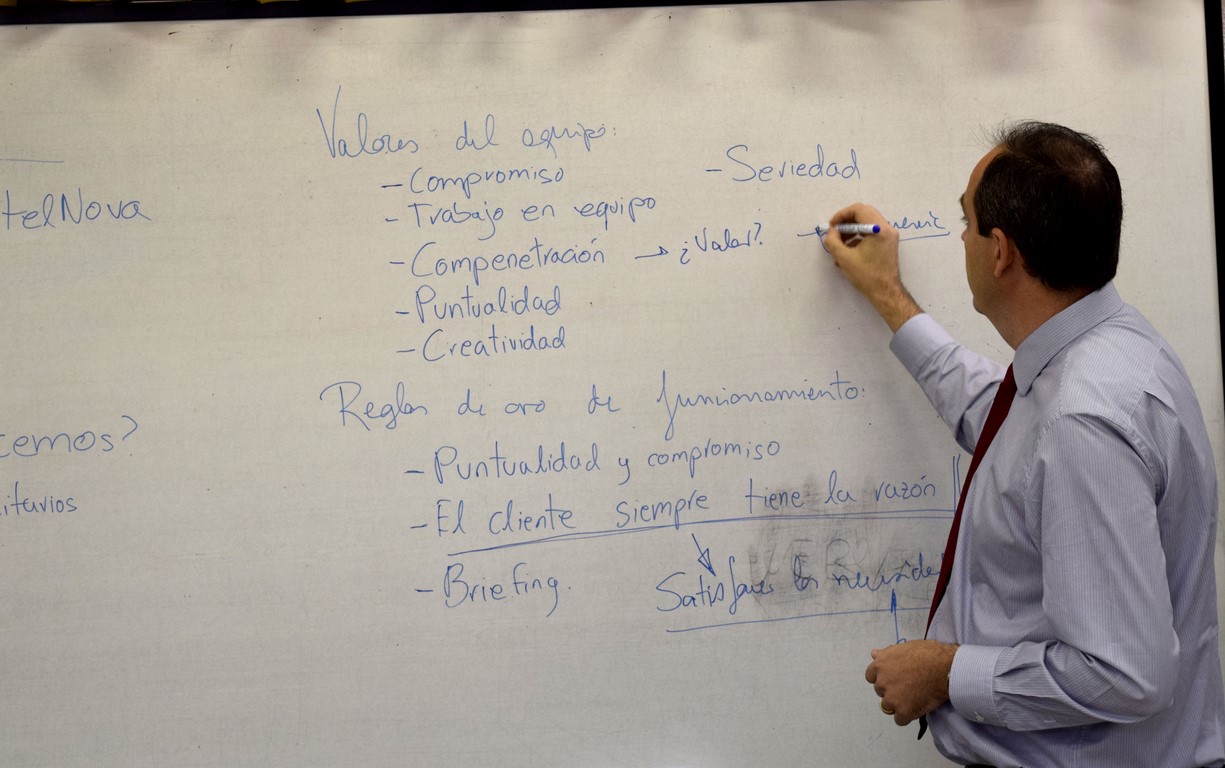 telNova
cemos?
itarios
Valores del equipo:
- Compromiso
- Seriedad
- Trabajo en equipo
- Compenetración → ¿Valor?
- Puntualidad
- Creatividad
Reglas de oro de funcionamiento:
- Puntualidad y compromiso
- El cliente siempre tiene la razón
- Briefing.